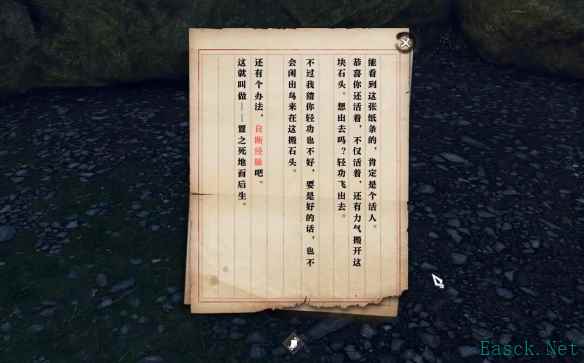 能看到这张纸条的，肯定是个活人。
恭喜你还活着，不仅活着，还有力气搬开这
块石头。想出去吗？轻功飞出去。
不过我猜你轻功也不好，要是好的话，也不
会闲出鸟来在这搬石头。
还有个办法，自断经脉吧。
这就叫做——置之死地而后生。
Easck.Net